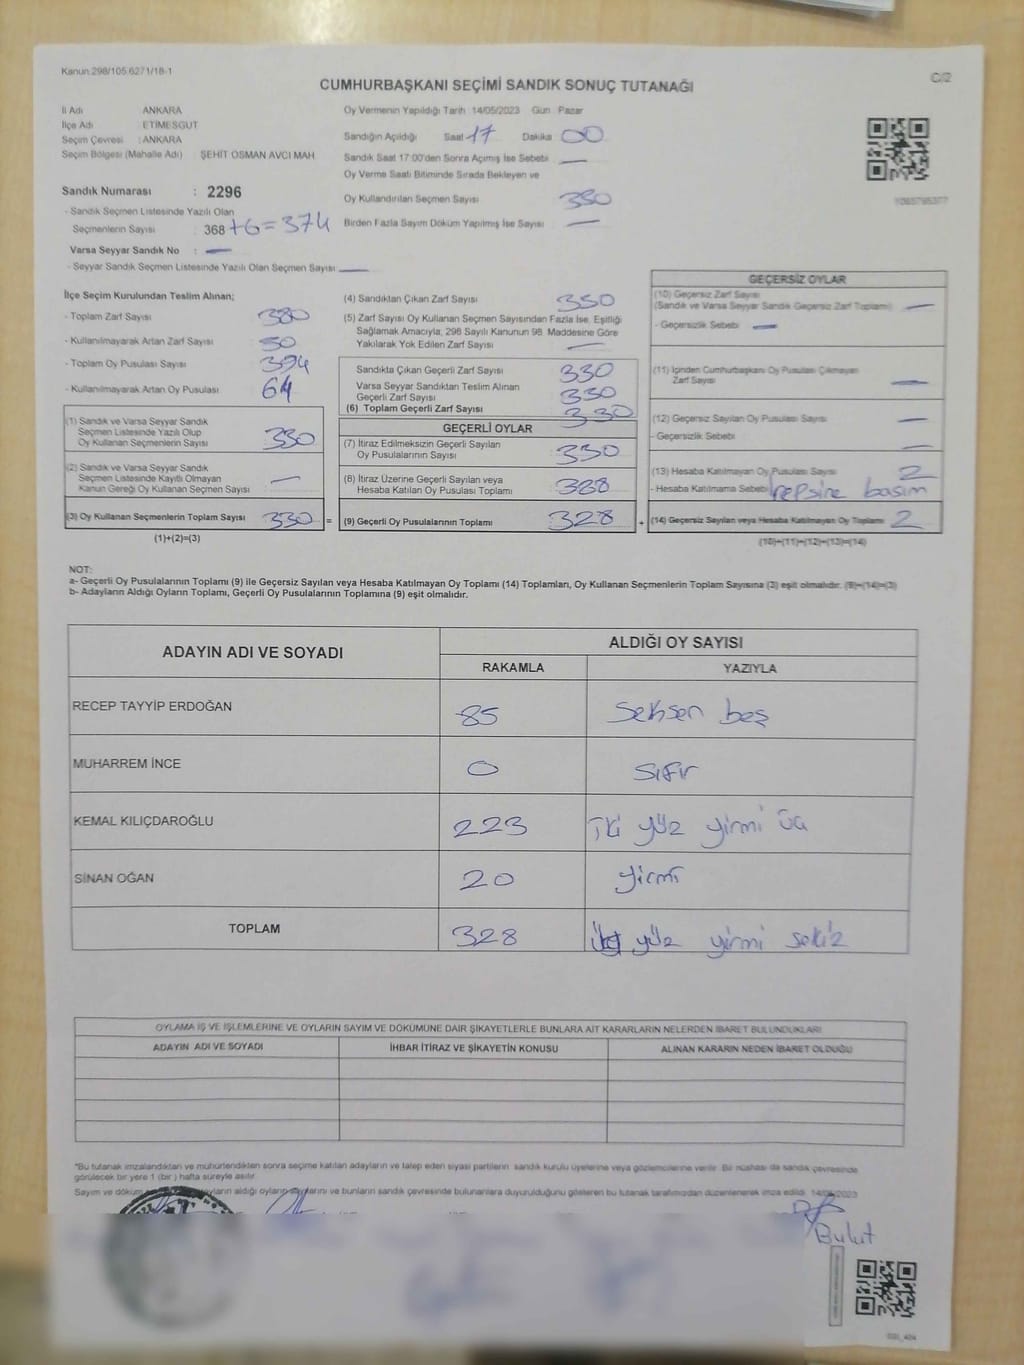 Kanun:298/105,6271/18-1
C/2
CUMHURBAŞKANI SEÇİMİ SANDIK SONUÇ TUTANAĞI
İl Adı ANKARA
İlçe Adı : ETİMESGUT
Seçim Çevresi : ANKARA
Seçim Bölgesi (Mahalle Adı) : ŞEHİT OSMAN AVCI MAH
Sandık Numarası : 2296
- Sandık Seçmen Listesinde Yazılı Olan
Seçmenlerin Sayısı : 368 +6=374
Varsa Seyyar Sandık No : —
- Seyyar Sandık Seçmen Listesinde Yazılı Olan Seçmen Sayısı: —
Oy Vermenin Yapıldığı Tarih :14/05/2023 Gün : Pazar
Sandığın Açıldığı Saat 17 Dakika 00
Sandık Saat 17:00'den Sonra Açımış İse Sebebi —
Oy Verme Saati Bitiminde Sırada Bekleyen ve
Oy Kullandırılan Seçmen Sayısı 330
Birden Fazla Sayım Döküm Yapılmış İse Sayısı —
İlçe Seçim Kurulundan Teslim Alınan;
- Toplam Zarf Sayısı 380
- Kullanılmayarak Artan Zarf Sayısı 50
- Toplam Oy Pusulası Sayısı 394
- Kullanılmayarak Artan Oy Pusulası 64
(1) Sandık ve Varsa Seyyar Sandık
Seçmen Listesinde Yazılı Olup
Oy Kullanan Seçmenlerin Sayısı 330
(2) Sandık ve Varsa Seyyar Sandık
Seçmen Listesinde Kayıtlı Olmayan
Kanun Gereği Oy Kullanan Seçmen Sayısı —
(3) Oy Kullanan Seçmenlerin Toplam Sayısı 330 =
(1)+(2)=(3)
(4) Sandıktan Çıkan Zarf Sayısı 330
(5) Zarf Sayısı Oy Kullanan Seçmen Sayısından Fazla İse, Eşitliği
Sağlamak Amacıyla; 298 Sayılı Kanunun 98. Maddesine Göre
Yakılarak Yok Edilen Zarf Sayısı —
Sandıkta Çıkan Geçerli Zarf Sayısı 330
Varsa Seyyar Sandıktan Teslim Alınan
Geçerli Zarf Sayısı 330
(6) Toplam Geçerli Zarf Sayısı 330
GEÇERLİ OYLAR
(7) İtiraz Edilmeksizin Geçerli Sayılan
Oy Pusulalarının Sayısı 330
(8) İtiraz Üzerine Geçerli Sayılan veya
Hesaba Katılan Oy Pusulası Toplamı
(9) Geçerli Oy Pusulalarının Toplamı 328 +
GEÇERSİZ OYLAR
(10) Geçersiz Zarf Sayısı
(Sandık ve Varsa Seyyar Sandık Geçersiz Zarf Toplamı) —
- Geçersizlik Sebebi —
(11) İçinden Cumhurbaşkanı Oy Pusulası Çıkmayan
Zarf Sayısı —
(12) Geçersiz Sayılan Oy Pusulası Sayısı —
- Geçersizlik Sebebi —
(13) Hesaba Katılmayan Oy Pusulası Sayısı 2
- Hesaba Katılmama Sebebi hepsine basım
(14) Geçersiz Sayılan veya Hesaba Katılmayan Oy Toplamı 2
(10)+(11)+(12)+(13)=(14)
NOT:
a- Geçerli Oy Pusulalarının Toplamı (9) ile Geçersiz Sayılan veya Hesaba Katılmayan Oy Toplamı (14) Toplamları, Oy Kullanan Seçmenlerin Toplam Sayısına (3) eşit olmalıdır. (9)+(14)=(3)
b- Adayların Aldığı Oyların Toplamı, Geçerli Oy Pusulalarının Toplamına (9) eşit olmalıdır.
ADAYIN ADI VE SOYADI ALDIĞI OY SAYISI
RAKAMLA YAZIYLA
RECEP TAYYİP ERDOĞAN 85 seksen beş
MUHARREM İNCE 0 sıfır
KEMAL KILIÇDAROĞLU 223 iki yüz yirmi üç
SİNAN OĞAN 20 yirmi
TOPLAM 328 üç yüz yirmi sekiz
OYLAMA İŞ VE İŞLEMLERİNE VE OYLARIN SAYIM VE DÖKÜMÜNE DAİR ŞİKAYETLERLE BUNLARA AİT KARARLARIN NELERDEN İBARET BULUNDUKLARI
ADAYIN ADI VE SOYADI İHBAR İTİRAZ VE ŞİKAYETİN KONUSU ALINAN KARARIN NEDEN İBARET OLDUĞU
*Bu tutanak imzalandıktan ve mühürlendikten sonra seçime katılan adayların ve talep eden siyasi partilerin sandık kurulu üyelerine veya gözlemcilerine verilir. Bir nüshası da sandık çevresinde
görülecek bir yere 1 (bir) hafta süreyle asılır.
Sayım ve döküm aldığı oyların sayılarını ve bunların sandık çevresinde bulunanlara duyurulduğunu gösteren bu tutanak tarafımızdan düzenlenerek imza edildi. 14/05/2023
Bulut